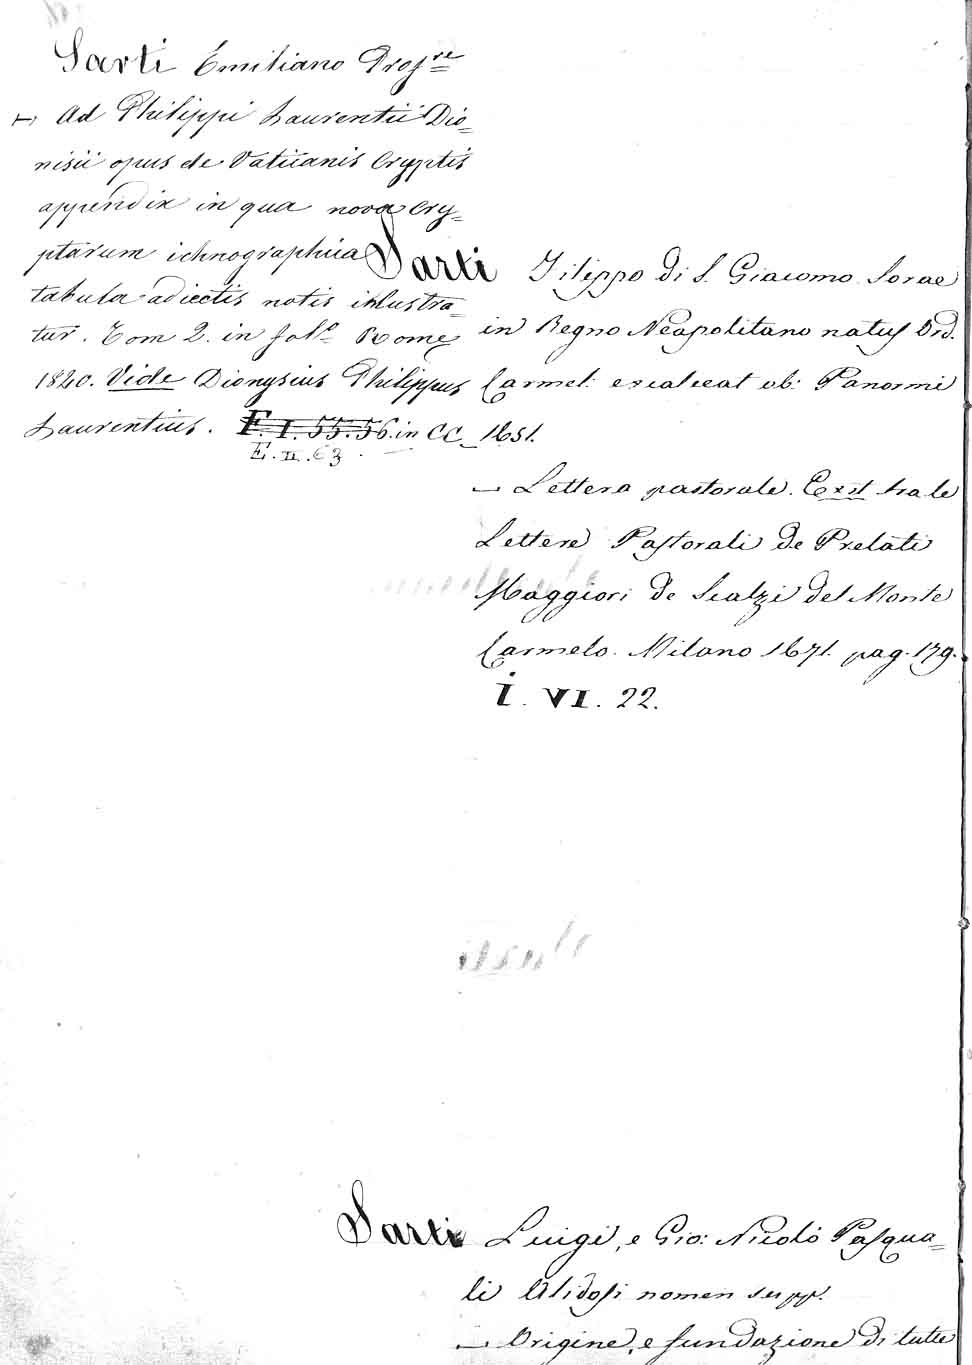 Sarti Emiliano Prof.re
Ad Philippi Laurentii Dio=
nisii opus de Vaticanis Cryptis
appendix in qua nova Cry=
ptarum ichnographica
tabula adiectis notis illustra=
tur. Tom 2. in fol.o Rome
1840. Vide Dionysius Philippus
Laurentius. F. I. 55. 56. in CC
E. II. 63
Sarti Filippo di S. Giacomo Sorae
in Regno Neapolitano natus Ord.
Carmel: excalceat ob: Panormi
1651.
— Lettera pastorale. Exst tra le
Lettere Pastorali de Prelati
Maggiori de Scalzi del Monte
Carmelo. Milano 1671. pag. 179.
i. VI. 22.
Sarti Luigi, e Gio: Nicolò Pasqua=
li Alidosi nomen supp.
— Origine, e fundazione di tutte